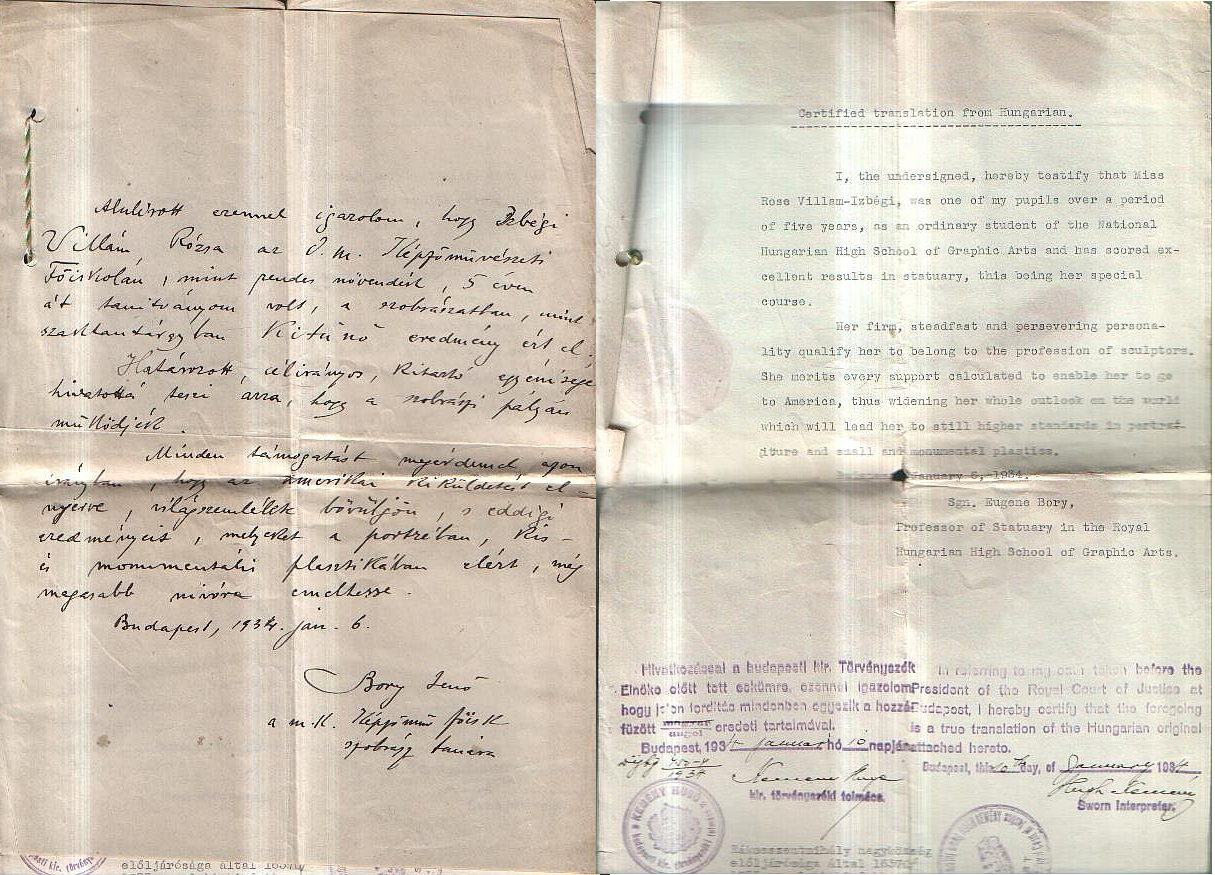 Alulírott ezennel igazolom, hogy Izbégi
Villám Rózsa az O. m. Képzőművészeti
Főiskolán, mint rendes növendék, 5 éven
át tanítványom volt, a szobrászatban, mint
szaktantárgyban kitünő eredményt ért el.
Határozott, célirányos, kitartó egyénisége
hivatottá teszi arra, hogy a szobrászi pályán
működjék.
Minden támogatást megérdemel azon
irányban, hogy az amerikai kiküldetést el-
nyerve, világszemlélete bővüljön, s eddigi
eredményeit, melyeket a portréban, kis-
és monumentális plasztikában elért, még
magasabb nivóra emelhesse.
Budapest, 1934. jan. 6.
Bory Jenő
a m. k. Képzőműv főisk
szobrász tanára
előljárósága által
Certified translation from Hungarian.
I, the undersigned, hereby testify that Miss
Rose Villam-Izbégi, was one of my pupils over a period
of five years, as an ordinary student of the National
Hungarian High School of Graphic Arts and has scored ex-
cellent results in statuary, this being her special
course.
Her firm, steadfast and persevering persona-
lity qualify her to belong to the profession of sculptors.
She merits every support calculated to enable her to go
to America, thus widening her whole outlook on the world
which will lead her to still higher standards in portrait-
iture and small and monumental plastics.
January 6, 1934.
Sgn. Eugene Bory,
Professor of Statuary in the Royal
Hungarian High School of Graphic Arts.
Hivatkozással a budapesti kir. Törvényszék
Elnöke előtt tett eskümre, ezennel igazolom
hogy jelen fordítás mindenben egyezik a hozzá
füzött magyar angol eredeti tartalmával.
Budapest, 1934 januar hó 10 napján
1934
kir. törvényszéki tolmács.
In referring to my oath taken before the
President of the Royal Court of Justice at
Budapest, I hereby certify that the foregoing
is a true translation of the Hungarian original
attached hereto.
Budapest, this 10th day, of January 1934
Sworn Interpreter.
Rákosszentmihály nagyközség
előljárósága által